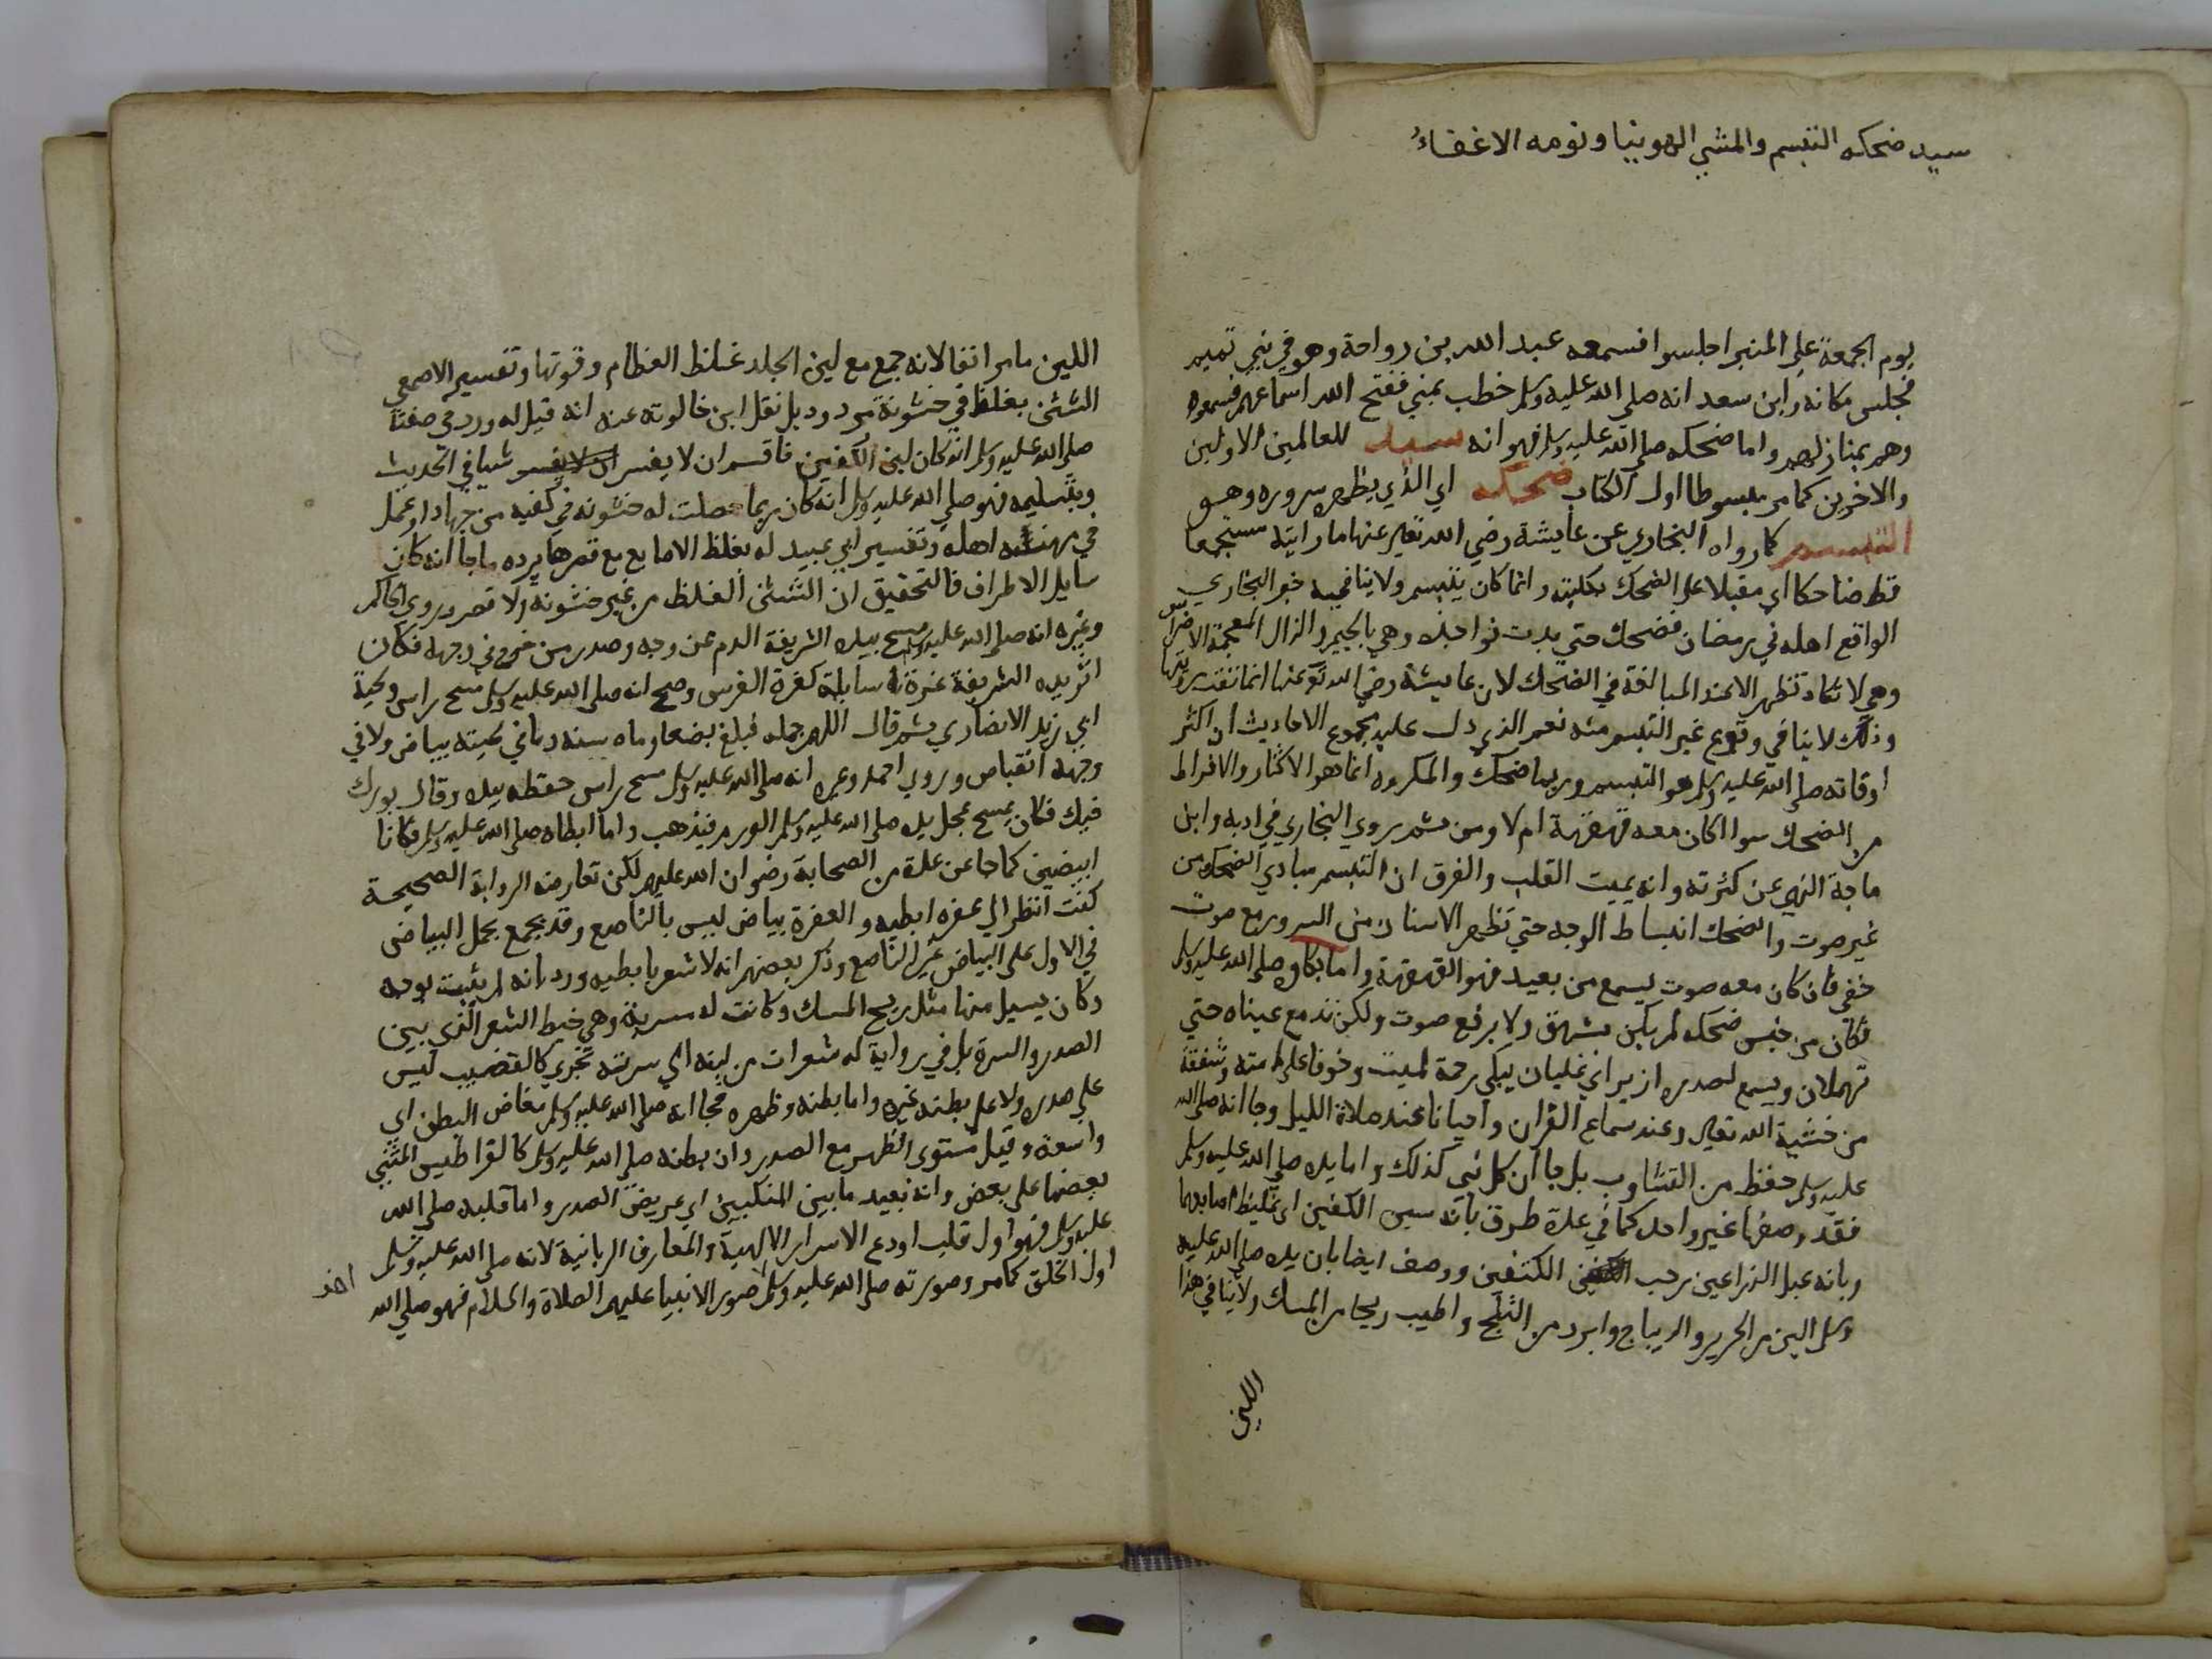 سيد ضحكه التبسم والمشي الهوينا ونومه الاغفاءُ
يوم الجمعة علي المنبر اجلسوا فسمعه عبد الله بن رواحة وهو في بني تميم
فجلس مكانه وابن سعد انه صلي الله عليه وسلم خطب بمني ففتح الله اسماعهم فسمعوه
وهم بمنازلهم واما ضحكه صلي الله عليه وسلم فهو انه سيد للعالمين الاولين
والاخرين كما مر مبسوطا اول الكتاب ضحكه اي الذي يظهر سروره وهو
التبسم كما رواه البخاري عن عايشة رضي الله تعالي عنها ما رايته مستجمعا
قط ضاحكا اي مقبلا علي الضحك بكليته وانما كان يتبسم ولا ينافيه خبر البخاري
الواقع اهله في رمضان فضحك حتي بدت نواجذه وهي بالجيم والذال المعجمة الاضراس
وهي لا تكاد تظهر الا عند المبالغة في الضحك لان عايشة رضي الله تع عنها انما نفت رويتها
وذلك لا ينافي وقوع غير التبسم منه نعم الذي دل عليه مجموع الاحاديث ان اكثر
اوقاته صلي الله عليه وسلم هو التبسم وربما ضحك والمكروه انما هو الاكثار والافراط
من الضحك سوا اكان معه قهقهة ام لا ومن ثم روي البخاري في ادبه وابن
ماجة النهي عن كثرته وانه يميت القلب والفرق ان التبسم مبادي الضحك من
غير صوت والضحك انبساط الوجه حتي تظهر الاسنان من السرور مع صوت
خفي فان كان معه صوت يسمع من بعيد فهو القهقهة واما بكاوه صلي الله عليه وسلم
فكان من جنس ضحكه لم يكن بشهق ولا برفع صوت ولكن تدمع عيناه حتي
تهملان ويسمع لصدره ازيز اي غليان يبكي رحمة لميت وخوفا علي امته وشفقة
من خشية الله تعالي وعند سماع القران واحيانا عند صلاة الليل وجا انه صلي الله
عليه وسلم حفظ من التثاوب بل جا ان كل نبي كذلك واما يده صلي الله عليه وسلم
فقد وصفها غير واحد كما في عدة طرق بانه شثن الكفين اي غليظ اصابعها
وبانه عبل الذراعين رحب الكفين ووصف ايضا بان يده صلي الله عليه
وسلم الين من الحرير والديباج وابرد من الثلج واطيب ريحا من المسك ولا ينافي هذا
اللين
اللين ما مر انفا لانه جمع مع لين الجلد غلظ العظام وقوتها وتفسير الاصمعي
الشثن بغلظ في خشونة مردود بل نقل ابن خالوته عنه انه قيل له ورد في صفته
صلي الله عليه وسلم انه كان لين الكفين فاقسم ان لا يفسر شيا في الحديث
وبتسليمه فهو صلي الله عليه وسلم انه كان ربما حصلت له خشونة في كفيه من جهاد او عمل
في مهنة اهله وتفسير ابي عبيد له بغلظ الاصابع مع قصرها يرده ما جا انه كان
سايل الاطراف فالتحقيق ان الشثن الغلظ من غير خشونة ولا قصر وروي الحاكم
وغيره انه صلي الله عليه وسلم مسح بيده الشريفة الدم عن وجه وصدر من جرح في وجهه فكان
اثر يده الشريفة غرة سايلة كغرة الفرس وصح انه صلي الله عليه وسلم مسح راس ولحية
ابي زيد الانصاري ثم قال اللهم جمله فبلغ بضعا وماه سنه وما في لحيته بياض ولا في
وجهه انقباض وروي احمد وغيره انه صلي الله عليه وسلم مسح راس حنظله بيده وقال بورك
فيك فكان يمسح بمحل يده صلي الله عليه وسلم الورم فيذهب واما ابطاه صلي الله عليه وسلم فكانا
ابيضين كما جا عن عدة من الصحابة رضوان الله عليهم لكن تعارضه الرواية الصحيحة
كنت انظر الي عفرة ابطيه والعفرة بياض ليس بالناصع وقد يجمع بحمل البياض
في الاول علي البياض غير الناصع وذكر بعضهم انه لا شعر بابطيه ورد بانه لم يثبت بوجه
وكان يسيل منها مثل ريح المسك وكانت له مسربة وهي خيط الشعر الذي بين
الصدر والسرة بل في رواية له شعرات من لبته الي سرته تجري كالقضيب ليس
علي صدره ولا علي بطنه غيره واما بطنه وظهره فجا انه صلي الله عليه وسلم مفاض البطن اي
واسعه وقيل مستوي الظهر مع الصدر وان بطنه صلي الله عليه وسلم كالقراطيس المثني
بعضها علي بعض وانه بعيد ما بين المنكبين اي عريض الصدر واما قلبه صلي الله
عليه وسلم فهو اول قلب اودع الاسرار الالهية والمعارف الربانية لانه صلي الله عليه وسلم
اول الخلق كما مر وصورته صلي الله عليه وسلم صور الانبيا عليهم الصلاة والسلام فهو صلي الله